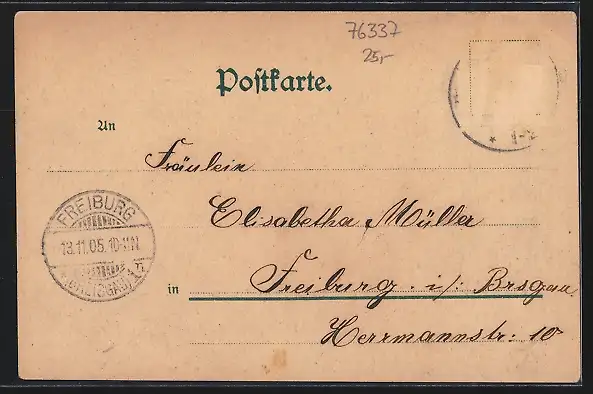 76337
25,-
Postkarte.
An
Fräulein
Elisabetha Müller
FREIBURG
13.11.05.10-11N.
(BREISGAU)
in Freiburg. i/: Brsgau
Herrmannstr: 10